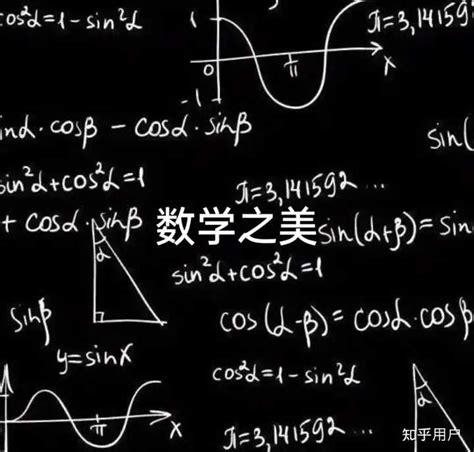 cos²α=1-sin²α
π=3,14159
1
0
π
x
-1
inα·cosβ-cosα·sinβ
sin(
sin²α+cos²α=1
π=3,141592...
+cosα·sinβ
数学之美
sin(α+β)=sin
α
sin²α+cos²α=1
sinβ
cos(α-β)=cosα·cosβ
y=sinx
cos²α=1-sin²α
π
x
α
π=3,141592...
知乎用户